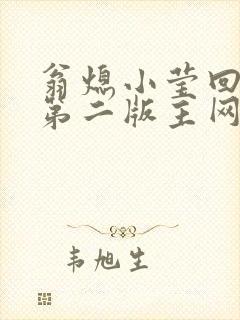 翁熄小莹回
第二版主网
韦旭生